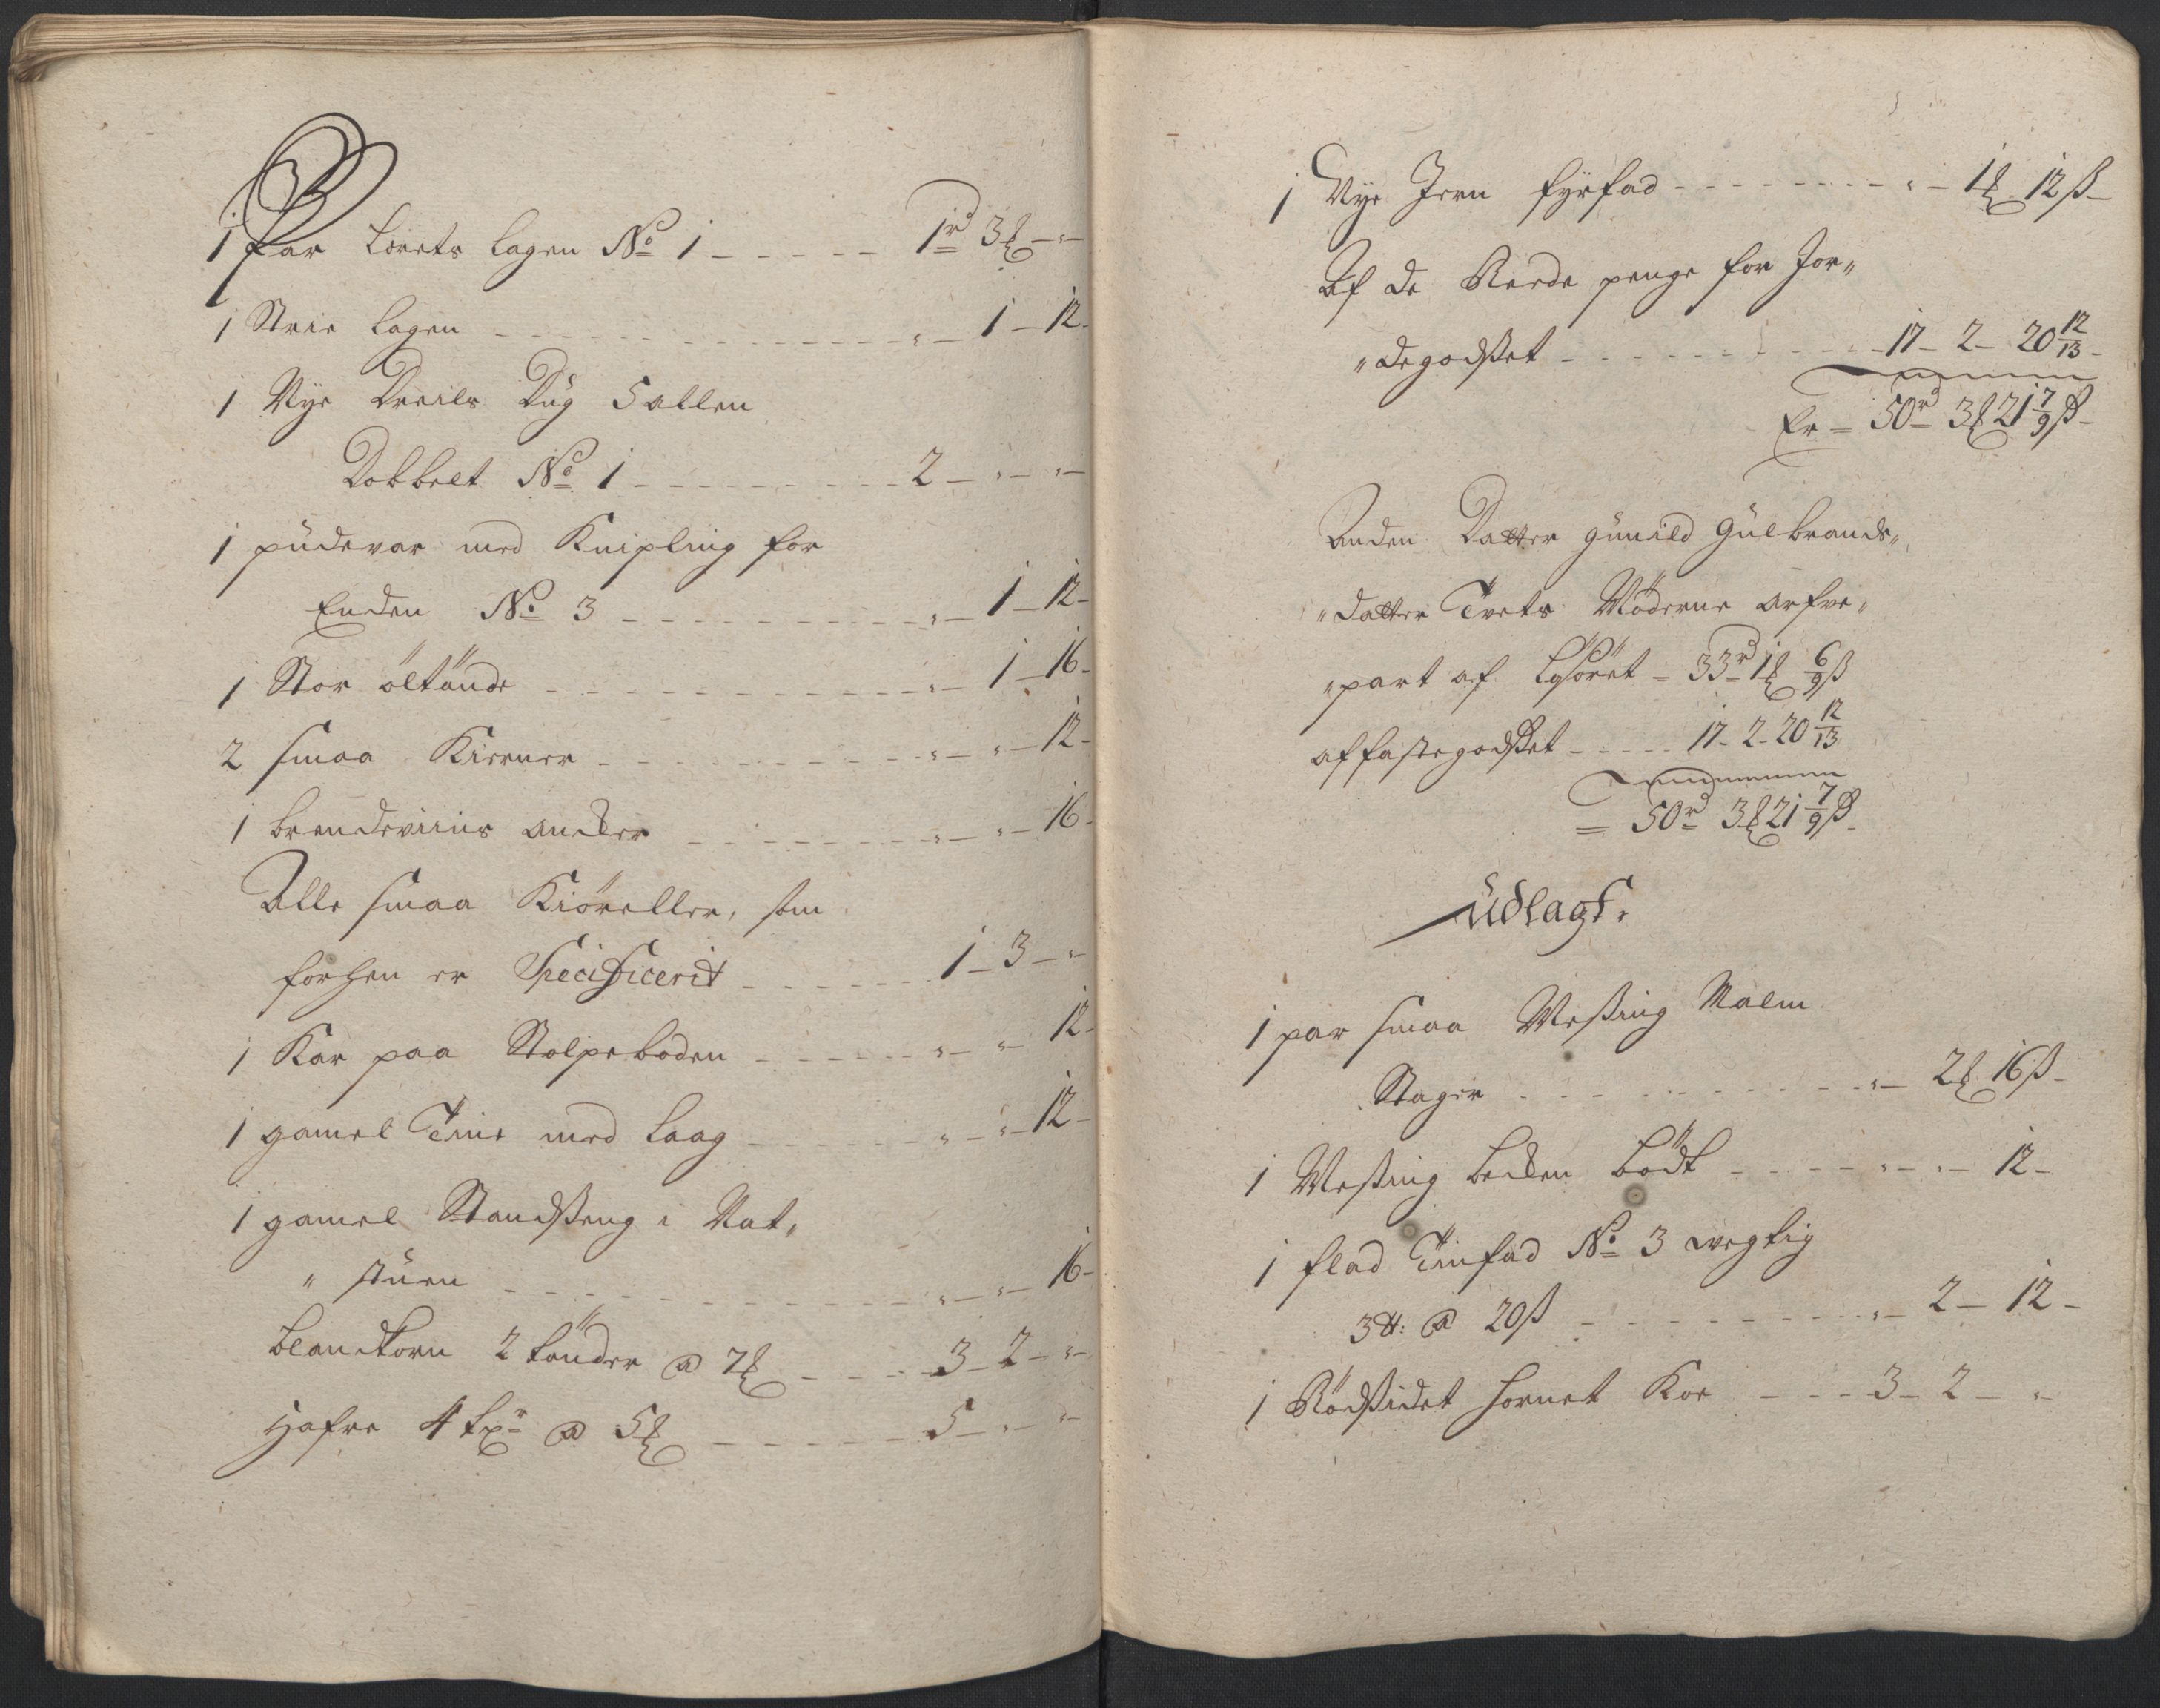 1 Par Lerets Lagen No 1 - - - - - 1rd 3 -"-
1 Strie Lagen - - - - - "- 1 - 12 -
1 Nye Dreils Dug 5 allen
Dobbelt No 1 - - - - - 2 - "- "-
1 püdevar med Knipling for
Enden No 3 - - - - - "- 1 - 12 -
1 Stor öltönde - - - - - "- 1 - 16 -
2 smaa Kierner - - - - - "- "- 12 -
1 brendeviins ancker - - - - - "- "- 16 -
Alle smaa Kiöreller, som
forhen er Specificerit - - - - - 1 - 3 - "-
1 Kar paa Stolpeboden - - - - - "- "- 12 -
1 gamel Tine med Laag - - - - - "- "- 12 -
1 gamel Standseng i Nat„
„stüen - - - - - "- "- 16 -
blandkorn 2 tönder a 7 - - - - 3 - 2 - "-
Hafre 4 tr a 5 - - - - - 5 - "- "-
1 Nye Jern fyrfad - - - - - "- 1 12 ß -
Af de penge for Jor„
„degodset - - - - - 17 - 2 - 20 12/13 -
Er = 50rd 3 21 7/9 ß -
Anden Datter Günild Gülbrands„
„datter Tvets Möderne arfve„
„part af Lösöret = 33rd 1 6/9 ß
af fastegodset - - - - - 17 - 2 - 20 12/13
= 50rd 3 21 7/9 ß -
Udlagt.
1 par smaa Messing Malm
Stager - - - - - "- 2 16 ß -
1 Messing becken bödt - - - - - "- "- 12 -
1 flad Tinfad No 3 wegtig
3 ℔: a 20 ß - - - - - "- 2 - 12 -
1 Rödsidet hornet Koe - - - 3 - 2 - "-